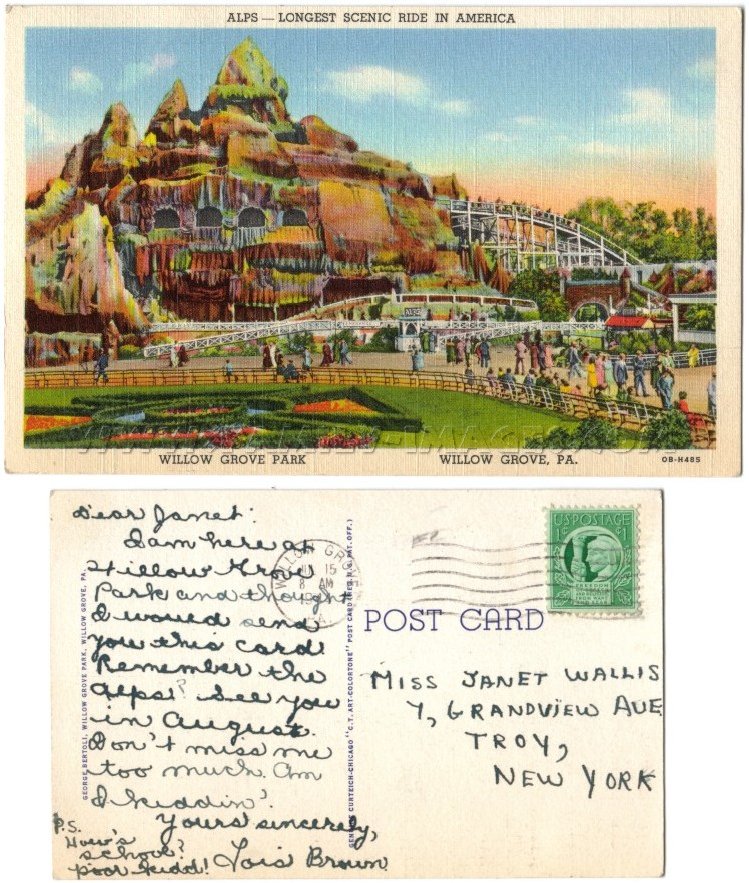 ALPS — LONGEST SCENIC RIDE IN AMERICA
ALPS
WILLOW GROVE PARK WILLOW GROVE, PA. OB-H485
Dear Janet:
I am here at
Willow Grove
Park and thought
I would send
you this card
Remember the
Alps? See you
in August.
Don't miss me
too much. Am
I kiddin'.
Yours sincerely,
Lois Brown
P.S.
How's
school?
poor kidd!
GEORGE BERTOLI, WILLOW GROVE PARK, WILLOW GROVE, PA.
GENUINE CURTEICH-CHICAGO "C.T. ART-COLORTONE" POST CARD (REG. U.S. PAT. OFF.)
WILLOW GROVE
15
8 AM
US POSTAGE
1¢ 1¢
POST CARD
MISS JANET WALLIS
7, GRANDVIEW AVE
TROY,
NEW YORK